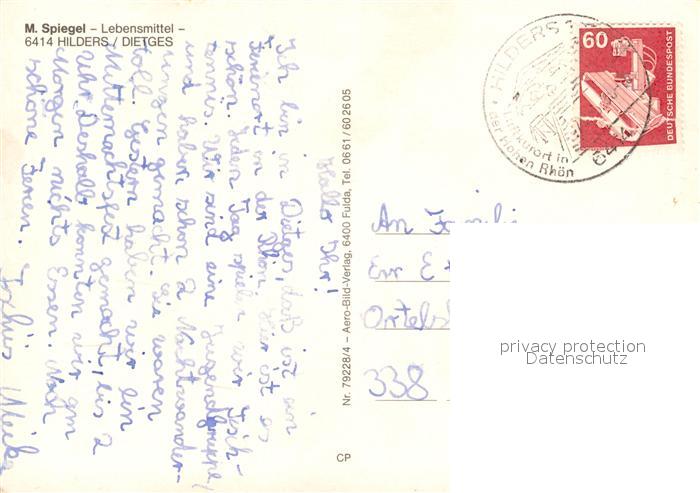 M. Spiegel – Lebensmittel –
6414 HILDERS / DIETGES
Hallo Ihr!
Ich bin in Dietges, daß ist ein
Ferienort in der Rhön. Hier ist es
schön. Jeden Tag spielen wir Tisch-
tennis. Wir sind eine Jugendgruppe,
und haben schon 2 Nachtwander-
ungen gemacht. Sie waren
toll. Gestern haben wir ein
Mitternachtsfest gemacht, bis 2
Uhr. Deshalb konnten wir am
Morgen nichts Essen. Noch
schöne Ferien.
Meike
Nr. 79228/4 – Aero-Bild-Verlag, 6400 Fulda, Tel. 06 61 / 60 26 05
CP
HILDERS
6414
Luftkurort in
der Hohen Rhön
60
DEUTSCHE BUNDESPOST
An Familie
Ortels
338
privacy protection
Datenschutz